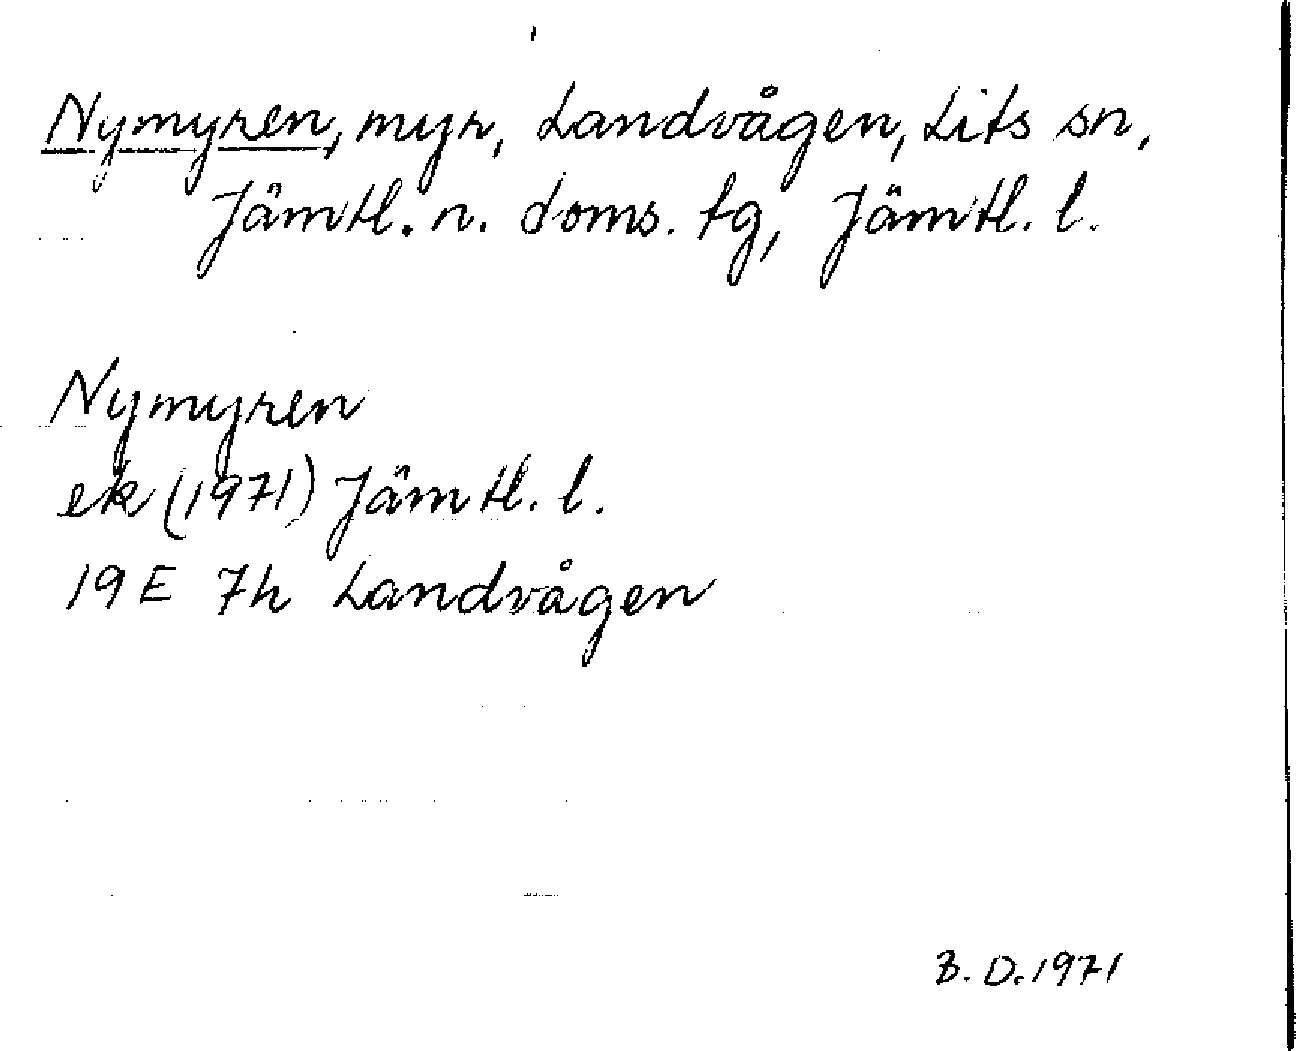 Nymyren, myr, Landvågen, Lits sn,
Jämtl. n. doms. tg, Jämtl. l.
Nymyren
ek (1971) Jämtl. l.
19E 7h Landvågen
B. D. 1971